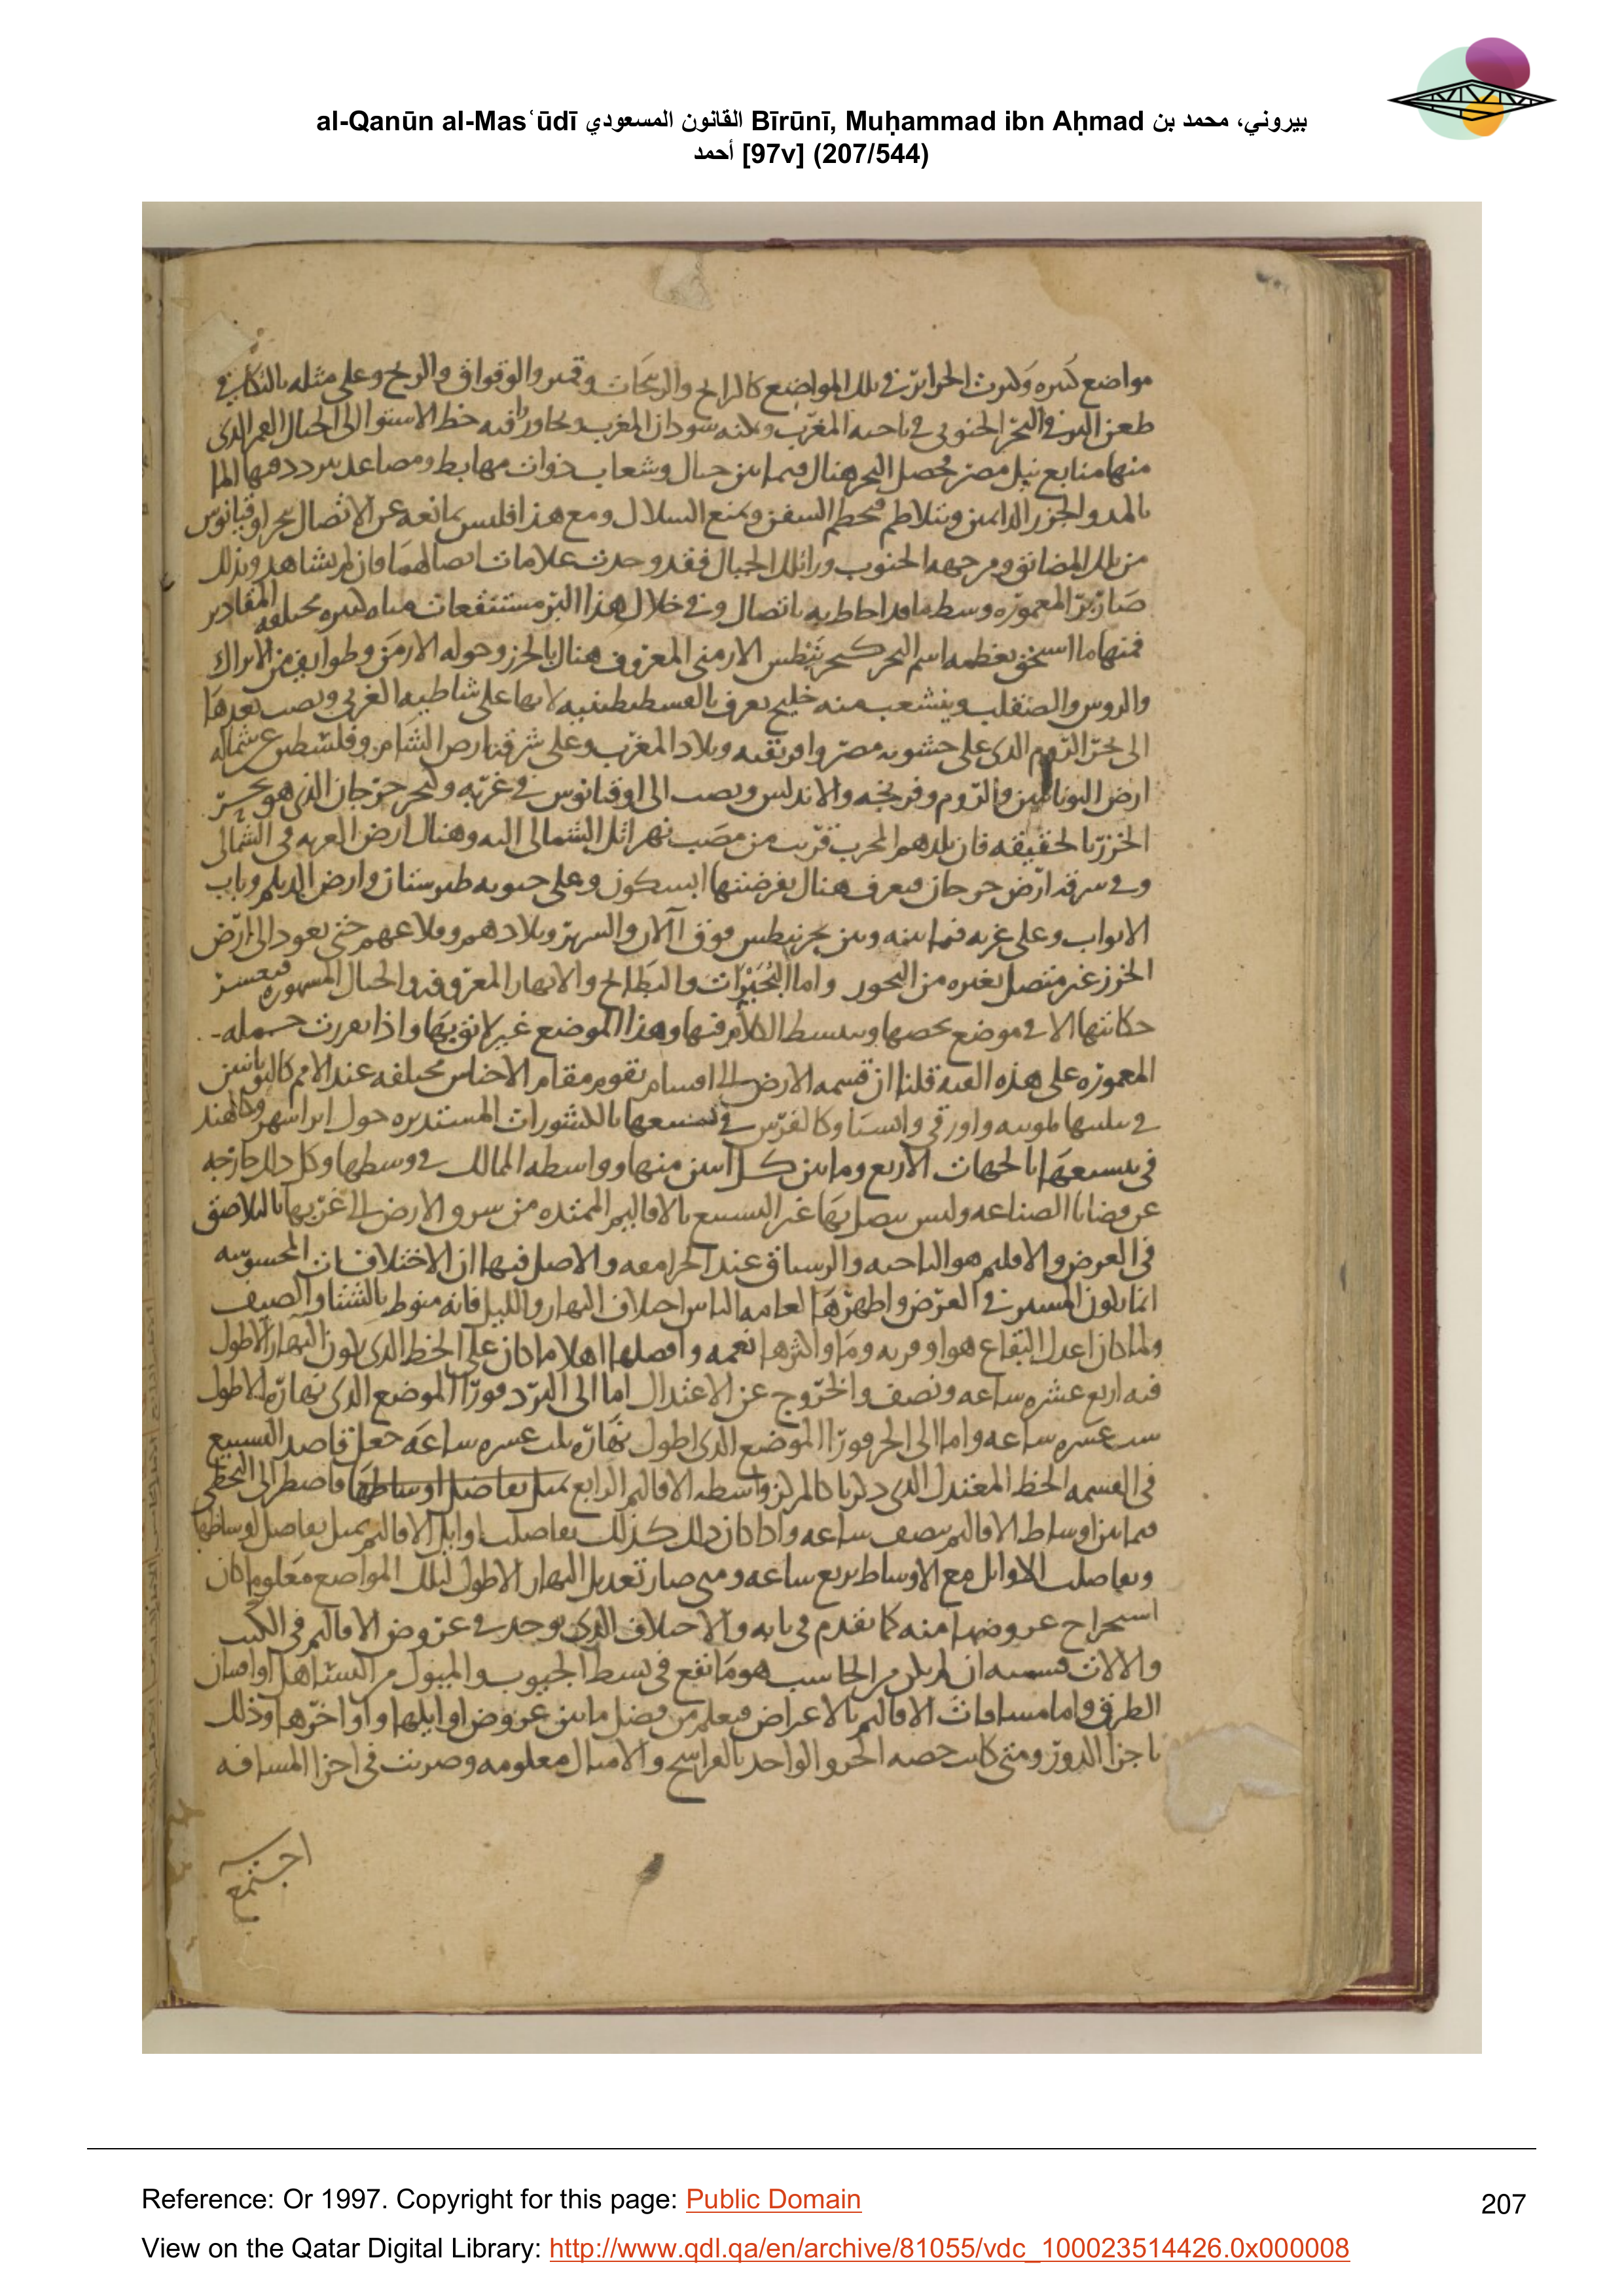 al-Qanūn al-Masʿūdī القانون المسعودي Bīrūnī, Muḥammad ibn Aḥmad بيروني، محمد بن
أحمد [97v] (207/544)
مواضع كثيره وكثرت الجزائر في تلك المواضع كالرانج والريبجات وقمير والوقواق والزنج وعلى مثله بالتكافي
طعن البر في البحر الجنوبي في ناحيه المغرب وسكنه سودان المغرب وتجاوز فيه خط الاستوا الى الجبال القمر الذي
منها منابع نيل مصر فحصل البحر هنال فيما بين جبال وشعاب ذوات مهابط ومصاعد يتردد فيها الما
بالمد والجزر الدايمين ويتلاطم فيحطم السفن ويمنع السلاك ومع هذا فليس يمانعه عن الاتصال ببحر اوقيانوس
من تلك المضائق ومن جهه الجنوب ورا تلك الجبال فقد وجدت علامات اتصالهما وان لم يشاهد وبذلك
صار بر المعموره وسط ما قد احاط به باتصال وفي خلال هذا البر مستنقعات مياه كثيره مختلفه المقادير
فمنها ما استحق بعظمه اسم البحر كبحر نيطس الارمني المعروف هنال بالخزر وحوله الارمن وطوايف من الاتراك
والروس والصقلب وينشعب منه خليج يعرف بالقسطنطينيه لانها على شاطيه الغربي ويصب بعدها
الى بحر الروم الذي على جنوبه مصر وافريقيه وبلاد المغرب وعلى شرقيه ارض الشام وفلسطين وعن شماله
ارض اليونانيين والروم وفرنجه والاندلس ويصب الى اوقيانوس في غربه وكبحر جرجان الذي هو بحر
الخزر بالحقيقه فان بلدهم الخرب قريب من مصب نهر اتل الشمالي اليه وهنال ارض الغزيه في الشمالي
وفي شرقه ارض جرجان فيعرف هنال بفرضتها ابسكون وعلى جنوبه طبرستان وارض الديلم وباب
الابواب وعلى غربه فيما بينه وبين بحر نيطس فوق آلان والسرير وبلادهم وقلاعهم حتى يعود الى ارض
الخزر غير متصل بغيره من البحور واما البحيرات والبطائح والانهار المعروفه والجبال المشهوره فيعسر
حكايتها الا في موضع يخصها وينبسط الكلام فيها وهذا الموضع غير لائق بها واذا تقررت جمله
المعموره على هذه الهيه قلنا ان قسمه الارض الى اقسام تقوم مقام الاجناس مختلفه عند الامم كاليونانيين
في تثليثها بلوبيه واورقى وايسيا وكالفرس في تسبيعها بالكشورات المستديره حول ايرانشهر وكالهند
في تتسيعها بالجهات الاربع وما بين كل اثنين منها وواسطه الممالك في وسطها وكل ذلك خارجه
عن قضايا الصناعه وليس يتصل بها غير التسبيع بالاقاليم الممتده من شرق الارض الى غربها بالتلاصق
في العرض والاقليم هو الناحيه والرستاق عند الجرامقه والاصل فيها ان الاختلافات المحسوسه
انما تكون للمسير في العرض واظهرها لعامه الناس اختلاف النهار والليل فانه منوط بالشتا والصيف
ولما كان اعدل البقاع هوا وتربه وما واكثرها نعمه وافضلها اهلا ما كان على الخط الذي يكون النهار الاطول
فيه اربع عشره ساعه ونصف والخروج عن الاعتدال اما الى البرد فورا الموضع الذي نهاره الاطول
ست عشره ساعه واما الى الحر فورا الموضع الذي اطول نهاره ثلث عشره ساعه جعل قاصد التسبيع
في القسمه الخط المعتدل الذي ذكرنا كالمركز واسطه الاقاليم الرابع بمثل تفاضل اوساطها فاضطر الى التخطي
فيما بين اوساط الاقاليم بنصف ساعه واذا كان ذلك كذلك تفاضلت اوايل الاقاليم بمثل تفاضل اوساطها
وتفاضلت الاوايل مع الاوساط بربع ساعه ومتى صار تعديل النهار الاطول لتلك المواضع معلوما كان
استخراج عروضها منه كما تقدم في بابه والاختلاف الذي يوجد في عروض الاقاليم في الكتب
والالات فسببه ان لم يكن من الحاسب هو ما يقع في بسط الجيوب والميول من التساهل او اقسان
الطرق واما مسافات الاقاليم بالاعراض فيعلم من فضل ما بين عروض اوايلها واواخرها وذلك
باجزا الدور ومتى كانت حصه الجزو الواحد بالفراسخ والاميال معلومه وضربت في اجزا المسافه
اجتمع
Reference: Or 1997. Copyright for this page: Public Domain
207
View on the Qatar Digital Library: http://www.qdl.qa/en/archive/81055/vdc_100023514426.0x000008